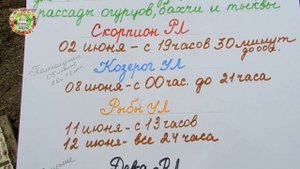 рассады огурцов, бахчи и тыквы
Скорпион РЛ
02 июня - с 19 часов 30 минут
до 00ч.
Козерог УЛ
08 июня - с 00 час. до 21 часа
Рыбы УЛ
11 июня - с 13 часов
12 июня - все 24 часа
Дева - РЛ